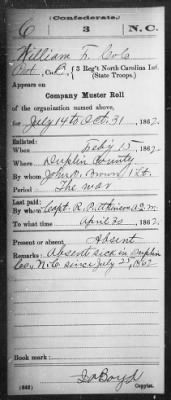 (Confederate.)
C 3 N.C.
William F. Cole
Pvt, Co. B, 3 Reg't North Carolina Inf.
(State Troops.)
Appears on
Company Muster Roll
of the organization named above,
for July 1 to Oct. 31, 1862.
Enlisted:
When Feby 15, 1862.
Where Duplin County
By whom John Brown 1 Lt.
Period The war
Last paid:
By whom Capt. R. A.Q.M.
To what time April 30, 1862.
Present or absent Absent
Remarks: Absent sick in Duplin
Co. N.C. since July 25 1862
Book mark:
(642) Copyist.